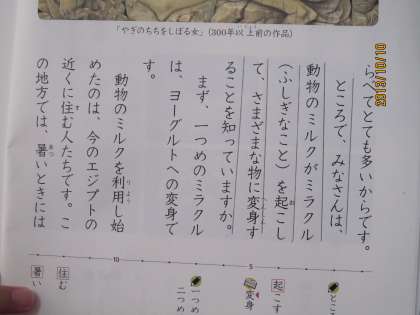 「やぎのちちをしぼる女」(300年以上前の作品)
2019/10/10
らべてとても多いからです。
ところで、みなさんは、
動物のミルクがミラクル
(ふしぎなこと)を起こし
て、さまざまな物に変身す
ることを知っていますか。
まず、一つめのミラクル
は、ヨーグルトへの変身で
す。
動物のミルクを利用し始
りよう
めたのは、今のエジプトの
近くに住む人たちです。こ
の地方では、暑いときには
あつ
5
10
ところ
起こす
変身
一つめ
二つめ
住む
暑い